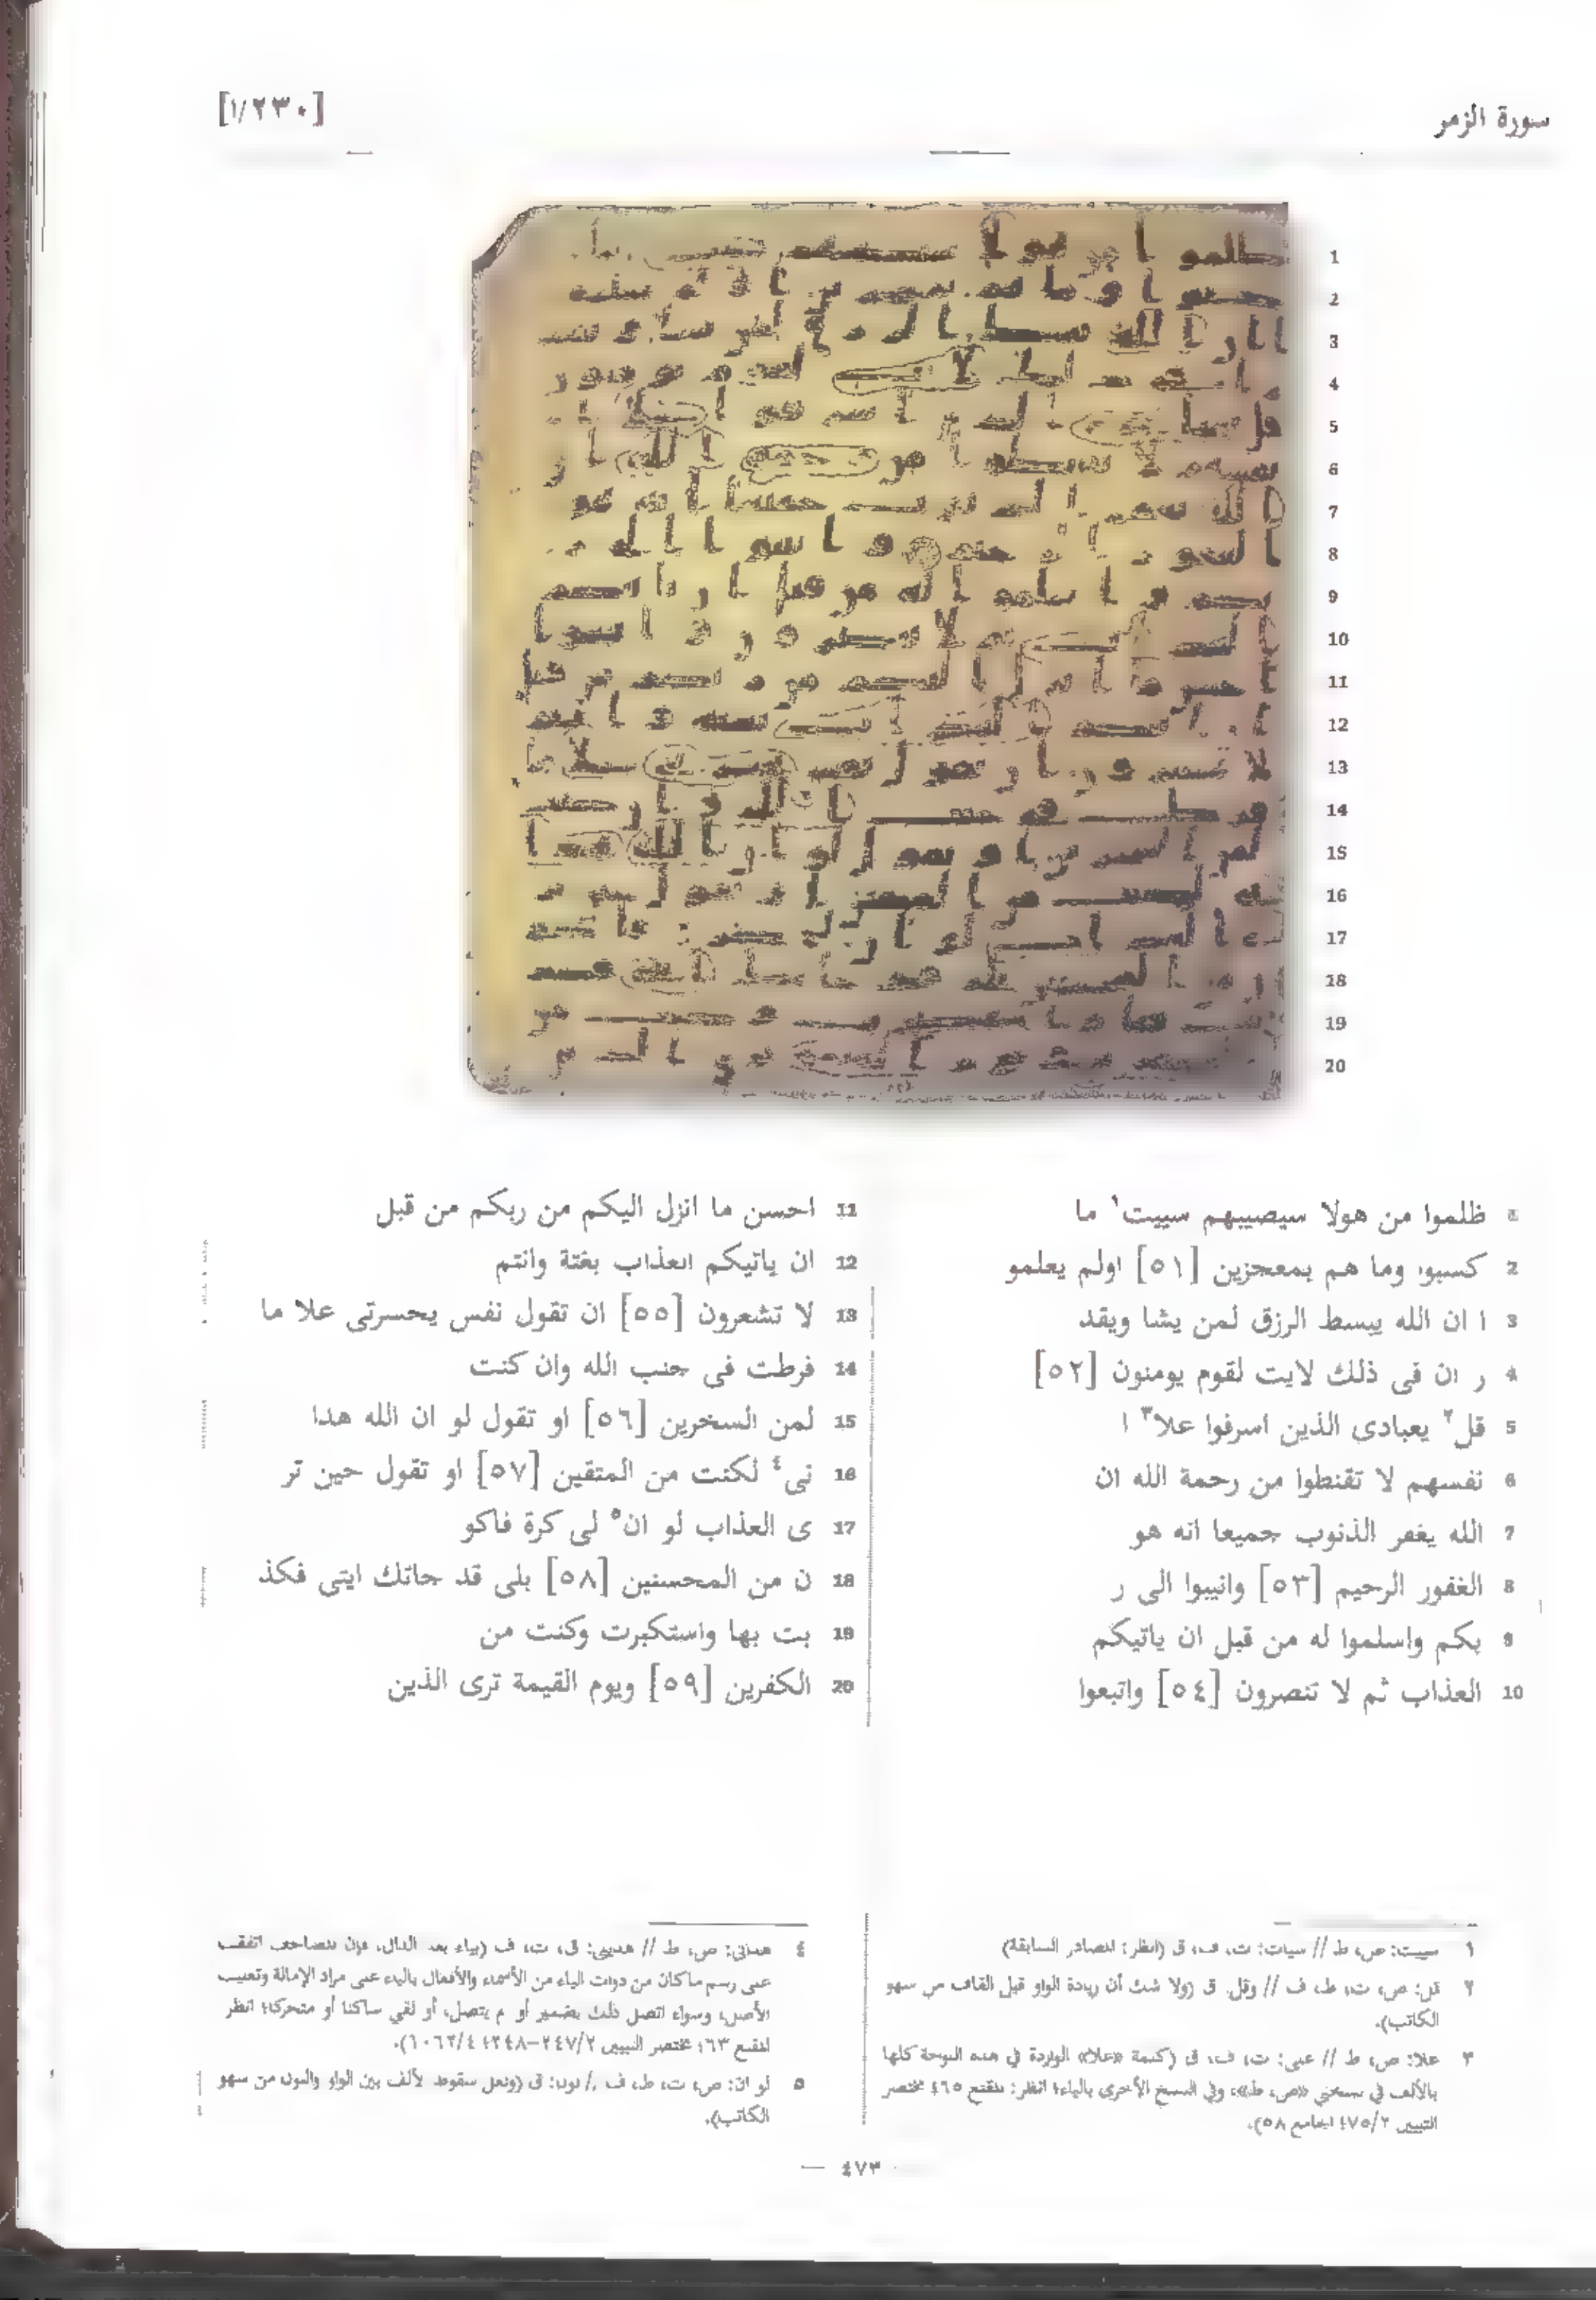 سورة الزمر
[١/٢٣٠]
1 ظلموا من هولا سيصيبهم سييت١ ما
2 كسبوا وما هم بمعجزين [٥١] اولم يعلمو
3 ا ان الله يبسط الرزق لمن يشا ويقد
4 ر ان فى ذلك لايت لقوم يومنون [٥٢]
5 قل٢ يعبادى الذين اسرفوا علا٣ ا
6 نفسهم لا تقنطوا من رحمة الله ان
7 الله يغفر الذنوب جميعا انه هو
8 الغفور الرحيم [٥٣] وانيبوا الى ر
9 بكم واسلموا له من قبل ان ياتيكم
10 العذاب ثم لا تنصرون [٥٤] واتبعوا
11 احسن ما انزل اليكم من ربكم من قبل
12 ان ياتيكم العذاب بغتة وانتم
13 لا تشعرون [٥٥] ان تقول نفس يحسرتى علا ما
14 فرطت فى جنب الله وان كنت
15 لمن السخرين [٥٦] او تقول لو ان الله هدا
16 نى٤ لكنت من المتقين [٥٧] او تقول حين تر
17 ى العذاب لو ان٥ لى كرة فاكو
18 ن من المحسنين [٥٨] بلى قد جاتك ايتى فكذ
19 بت بها واستكبرت وكنت من
20 الكفرين [٥٩] ويوم القيمة ترى الذين
١ سييت: ص، ط // سيات: ت، ف، ق (انظر: المصادر السابقة)
٢ قل: ص، ت، ط، ف // وقل: ق (ولا شك أن زيادة الواو قبل القاف من سهو
الكاتب).
٣ علا: ص، ط // على: ت، ف، ق (كلمة «علا» الواردة في هذه اللوحة كلها
بالألف في نسختي «ص، ط»، وفي النسخ الأخرى بالياء؛ انظر: المقنع ٦٥؛ مختصر
التبيين ٧٥/٢؛ الجامع ٥٨).
٤ هداني: ص، ط // هديني: ق، ت، ف (بياء بعد الدال، فإن المصاحف اتفقت
على رسم ما كان من ذوات الياء من الأسماء والأفعال بالياء على مراد الإمالة وتغليب
الأصل، وسواء اتصل ذلك بضمير أو لم يتصل، أو لقي ساكنا أو متحركا؛ انظر
المقنع ٦٣؛ مختصر التبيين ٢٤٧/٢-٢٤٨؛ ١٠٦٢/٤).
٥ لو ان: ص، ت، ط، ف // لون: ق (ولعل سقوط الألف بين الواو والنون من سهو
الكاتب).
— ٤٧٣ —